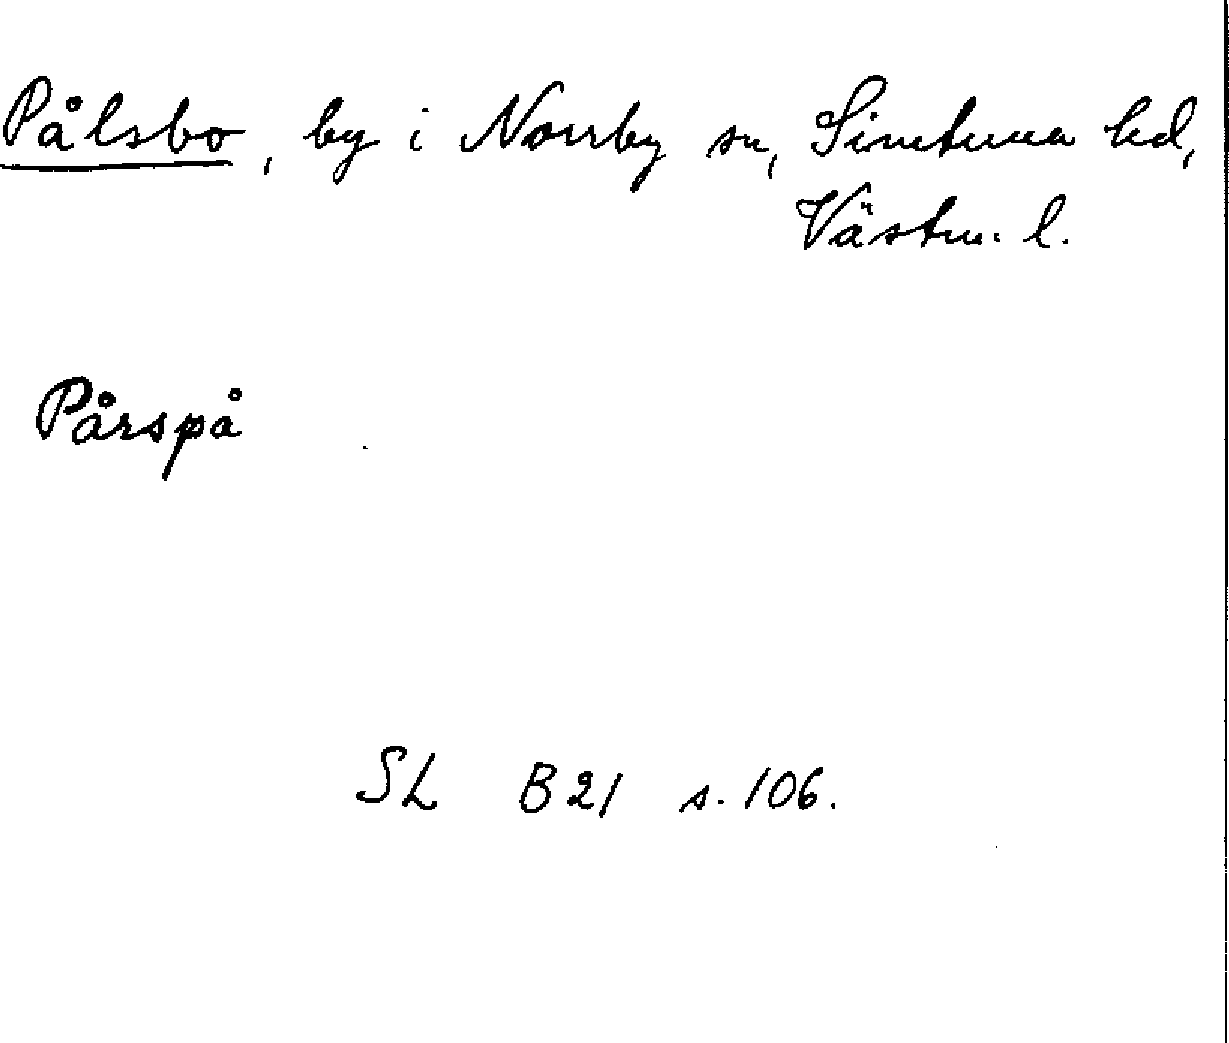 Pålsbo, by i Norrby sn, Simtuna hd,
Västm. l.
Pårspå
SL B21 s. 106.